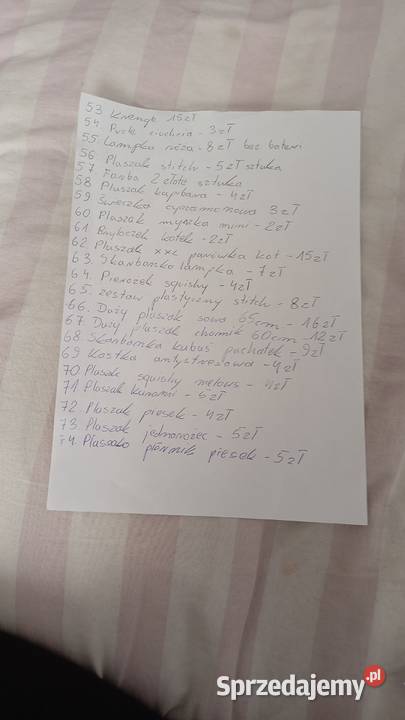 53. Kinengo 15zł
54. Puste ciuchcia - 3zł
55. Lampka róża - 8zł bez baterii
56 Pluszak stitch - 5zł sztuka
57 Farba 2 złote sztuka
58 Pluszak kapibara - 4zł
59 Świeczka cynamonowa 3zł
60 Pluszak myszka mini - 2zł
61 Breloczek kotek - 2zł
62 Pluszak xxl parówka kot - 15zł
63. Skarbonko lampka - 7zł
64. Pierożek squishy - 4zł
65. zestaw plastyczny stitch - 8zł
66. Duży pluszak sowa 65cm - 16zł
67. Duży pluszak chomik 60cm - 12zł
68 Skarbonka kubuś puchatek - 9zł
69 Kostka antystresowa - 4zł
70. Pluszak squishy - 4zł
71. Pluszak kanarek - 5zł
72. Pluszak piesek - 4zł
73. Pluszak jednorożec - 5zł
74. Pluszako piórnik piesek - 5zł
Sprzedajemy.pl